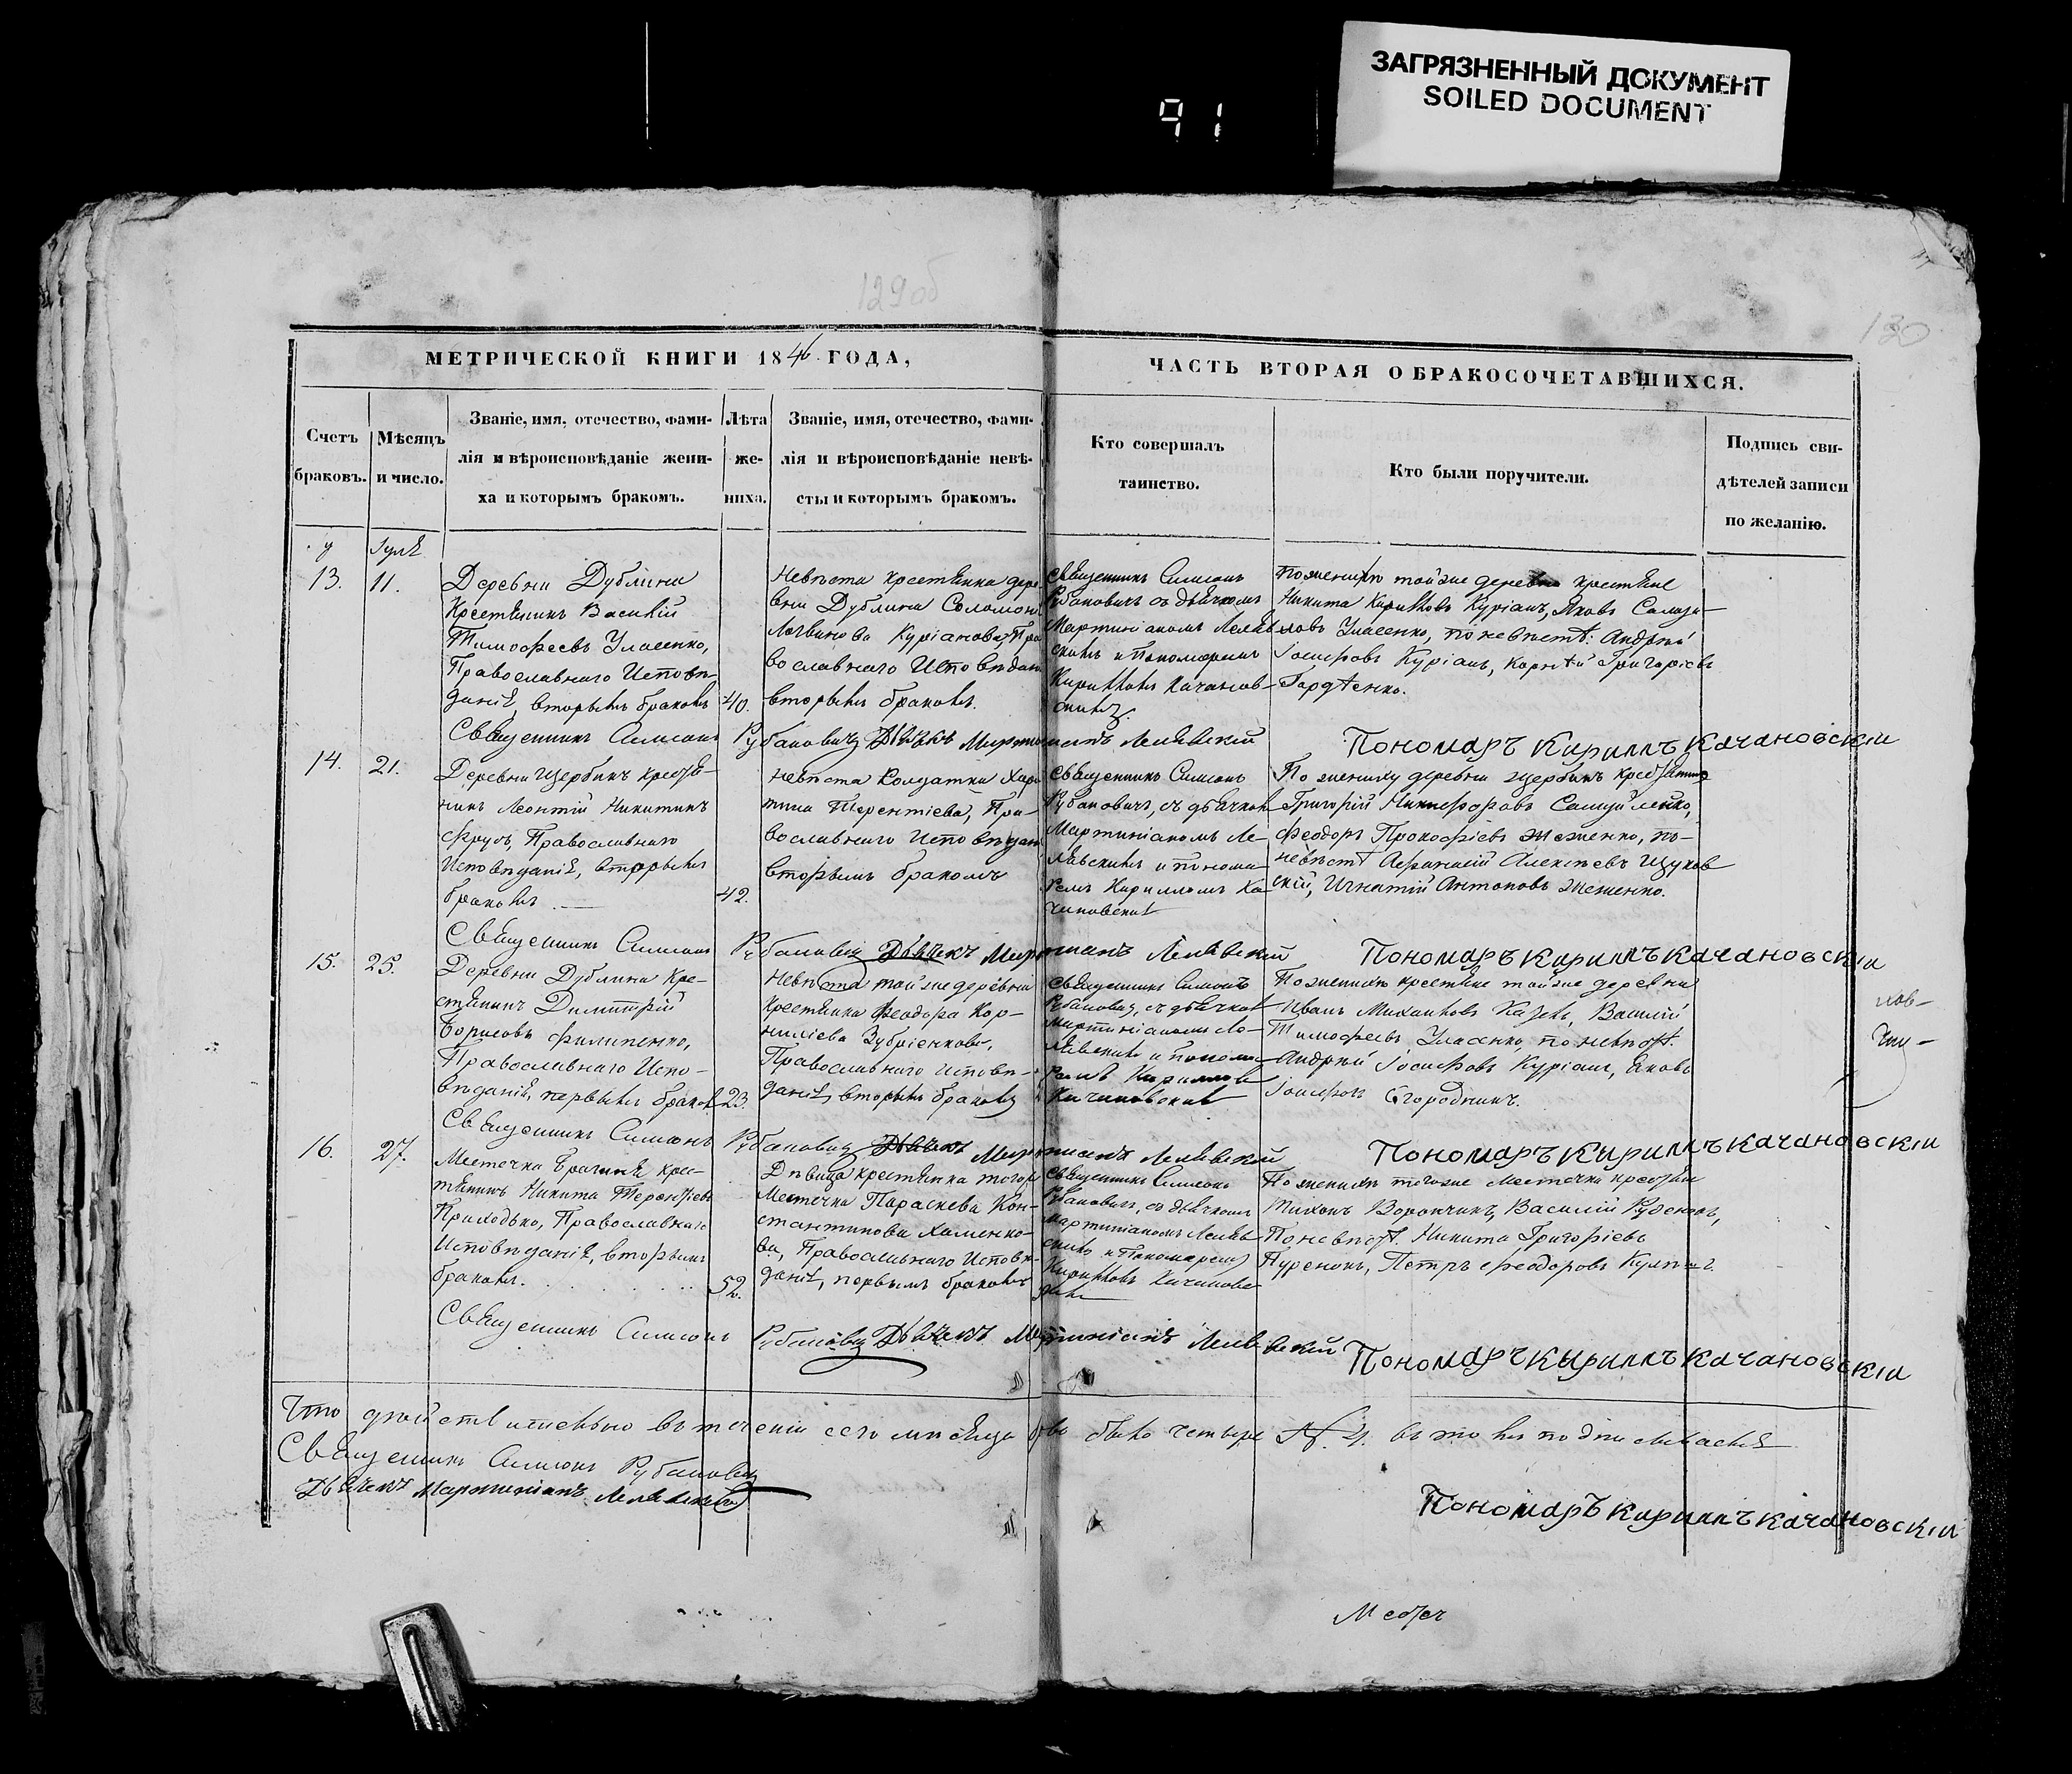 ЗАГРЯЗНЕННЫЙ ДОКУМЕНТ
SOILED DOCUMENT
91
129об
130
МЕТРИЧЕСКОЙ КНИГИ 1846 ГОДА,
ЧАСТЬ ВТОРАЯ О БРАКОСОЧЕТАВШИХСЯ.
Счетъ
браковъ.
Мѣсяцъ
и число.
Званіе, имя, отечество, фами-
лія и вѣроисповѣданіе жени-
ха и которымъ бракомъ.
Лѣта
же-
ниха.
Званіе, имя, отечество, фами-
лія и вѣроисповѣданіе невѣ-
сты и которымъ бракомъ.
Кто совершалъ
таинство.
Кто были поручители.
Подпись сви-
дѣтелей записи
по желанію.
Іуля
13.
11.
Деревни Дублина
Крестянинъ Василій
Тимофеевъ Уласенко,
Православнаго Исповѣ-
данія, вторымъ бракомъ
40.
Невѣста крестянка дере
вни Дублина Соломони
Логвинова Куріанова, Пра
вославнаго Исповѣдан
вторымъ бракомъ.
Священникъ Симеонъ
Рубановичъ съ дьячкомъ
Мартиніаномъ Леляв
скимъ и Пономаремъ
Кирилломъ Качанов-
скимъ.
По жениху тойже деревни крестяне
Никита Кирилловъ Куріанъ, Яковъ
Уласенко, по невѣстѣ: Андрей
Іосифовъ Куріанъ, Корнѣй Григоріевъ
Гордѣенко.
Священникъ Симеонъ Рубановичъ Дьячекъ Мартиніанъ Лелявскій
Пономаръ Кириллъ Качановскіи
14.
21.
Деревни Щербинъ крестя-
нинъ Леонтій Никитинъ
Православнаго
Исповѣданія, вторымъ
бракомъ
42.
Невѣста Солдатка Хари
тина Терентіева, Пра-
вославнаго Исповѣдан
вторымъ бракомъ
Священникъ Симеонъ
Рубановичъ, съ дьячком
Мартиніаномъ Ле-
лявскимъ и понома-
ремъ Кирилломъ Ка
чановским
По жениху деревни Щербинъ крестянинъ
Григорій Никифоровъ Самуйленко,
Феодоръ Прокофіевъ Жеженко, по-
невѣстѣ Афанасій Алексѣевъ Щуков
скій, Игнатій Антоновъ Жеженко.
Священникъ Симеонъ Рубановичъ Дьячекъ Мартиніанъ Лелявскій
Пономаръ Кириллъ Качановскіи
15.
25.
Деревни Дублина Кре-
стянинъ Димитрій
Борисовъ Филипенко,
Православнаго Испо-
вѣданія, первымъ браком
23.
Невѣста тойже деревни
Крестянка Феодора Кор-
ниліева Зубріенкова,
Православнаго исповѣ-
данія, вторымъ бракомъ
Священникъ Симеонъ
Рубановичъ, съ дьячком
Мартиніаномъ Ле-
лявскимъ и Понома
ремъ Кирилломъ
Качановским
По жениху крестяне тойже деревни
Иванъ Михаиловъ Казекъ, Василій
Тимофеевъ Уласенко, по невѣстѣ.
Андрей Іосифовъ Куріанъ, Яковъ
Іосифовъ Огородникъ.
Священникъ Симеонъ Рубановичъ Дьячекъ Мартиніанъ Лелявскій
Пономаръ Кириллъ Качановскіи
16.
27.
Местечка Брагиня крес-
тянинъ Никита Терентіевъ
Приходько, Православнаго
Исповѣданія, вторымъ
бракомъ.
52.
Дѣвица крестянка тогож
Местечка Параскева Кон-
стантинова Хаменко-
ва, Православнаго Исповѣ-
данія, первымъ бракомъ
Священникъ Симеонъ
Рубановичъ, съ дьячкомъ
Мартиніаномъ Леляв
скимъ и Пономаремъ
Кирилломъ Качановс
ким
По жениху тогоже Местечка крестяне
Тихонъ Ворончинъ, Василій Руденокъ,
По невѣстѣ. Никита Григоріевъ
Пуренокъ, Петръ Феодоровъ
Священникъ Симеонъ Рубановичъ Дьячекъ Мартиніанъ Лелявскій
Пономаръ Кириллъ Качановскіи
Что действительно въ теченіи сего месяца было четыре №. 4. въ томъ подписываемся
Священникъ Симеонъ Рубановичъ
Дьячекъ Мартиніанъ Лелявскій
Пономаръ Кириллъ Качановскіи